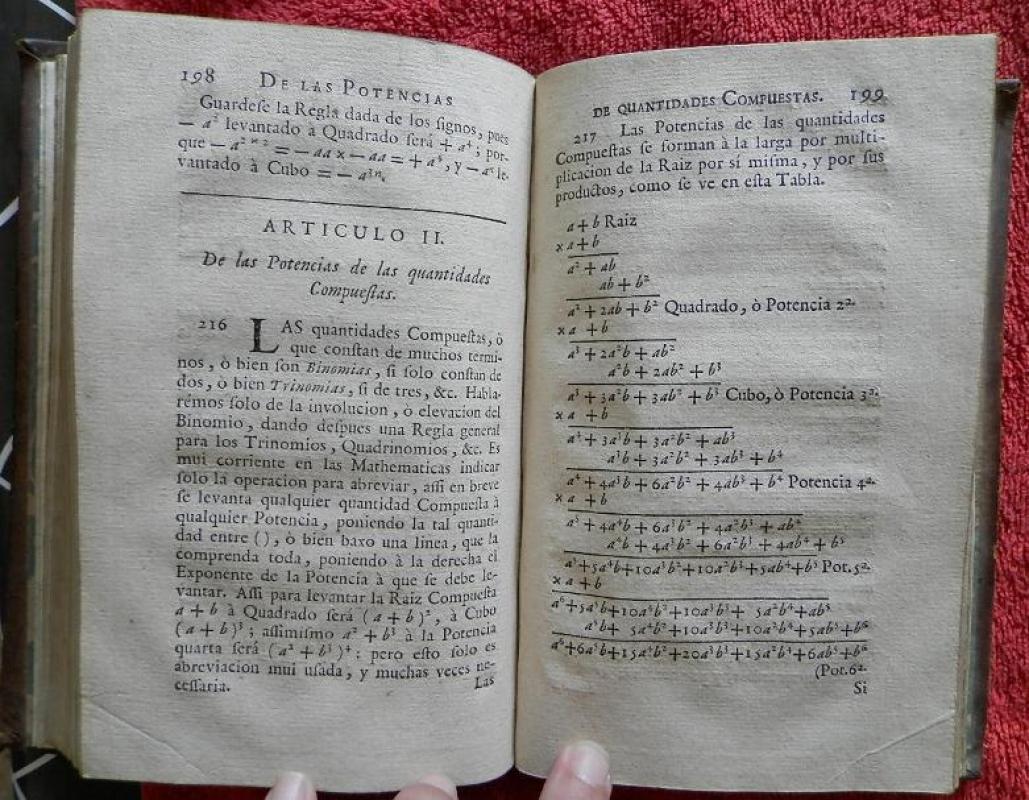 198 DE LAS POTENCIAS
Guardeſe la Regla dada de los ſignos, pues
— a² levantado à Quadrado ſerá + a⁴; por-
que — a²ˣ² = — aa × — aa = + a⁴, y — aⁿ le-
vantado à Cubo = — a³ⁿ.
ARTICULO II.
De las Potencias de las quantidades
Compueſtas.
216 LAS quantidades Compueſtas, ò
que conſtan de muchos termi-
nos, ò bien ſon Binomias, ſi ſolo conſtan de
dos, ò bien Trinomias, ſi de tres, &c. Habla-
rémos ſolo de la involucion, ò elevacion del
Binomio, dando deſpues una Regla general
para los Trinomios, Quadrinomios, &c. Es
mui corriente en las Mathematicas indicar
ſolo la operacion para abreviar, aſſi en breve
ſe levanta qualquier quantidad Compueſta à
qualquier Potencia, poniendo la tal quanti-
dad entre ( ), ò bien baxo una linea, que la
comprenda toda, poniendo à la derecha el
Exponente de la Potencia à que ſe debe le-
vantar. Aſſi para levantar la Raiz Compueſta
a + b à Quadrado ſerá (a + b)², à Cubo
(a + b)³; aſſimiſmo a² + b³ à la Potencia
quarta ſerá (a² + b³)⁴: pero eſto ſolo es
abreviacion mui uſada, y muchas veces ne-
ceſſaria.
Las
DE QUANTIDADES COMPUESTAS. 199
217 Las Potencias de las quantidades
Compueſtas ſe forman à la larga por multi-
plicacion de la Raiz por sí miſma, y por ſus
productos, como ſe ve en eſta Tabla.
a + b Raiz
× a + b
a² + ab
ab + b²
a² + 2ab + b² Quadrado, ò Potencia 2ª.
× a + b
a³ + 2a²b + ab²
a²b + 2ab² + b³
a³ + 3a²b + 3ab² + b³ Cubo, ò Potencia 3ª.
× a + b
a⁴ + 3a³b + 3a²b² + ab³
a³b + 3a²b² + 3ab³ + b⁴
a⁴ + 4a³b + 6a²b² + 4ab³ + b⁴ Potencia 4ª.
× a + b
a⁵ + 4a⁴b + 6a³b² + 4a²b³ + ab⁴
a⁴b + 4a³b² + 6a²b³ + 4ab⁴ + b⁵
a⁵+5a⁴b+10a³b²+10a²b³+5ab⁴+b⁵ Pot.5ª.
× a + b
a⁶+5a⁵b+10a⁴b²+10a³b³+ 5a²b⁴+ab⁵
a⁵b+ 5a⁴b²+10a³b³+10a²b⁴+5ab⁵+b⁶
a⁶+6a⁵b+15a⁴b²+20a³b³+15a²b⁴+6ab⁵+b⁶
(Pot.6ª.
Si